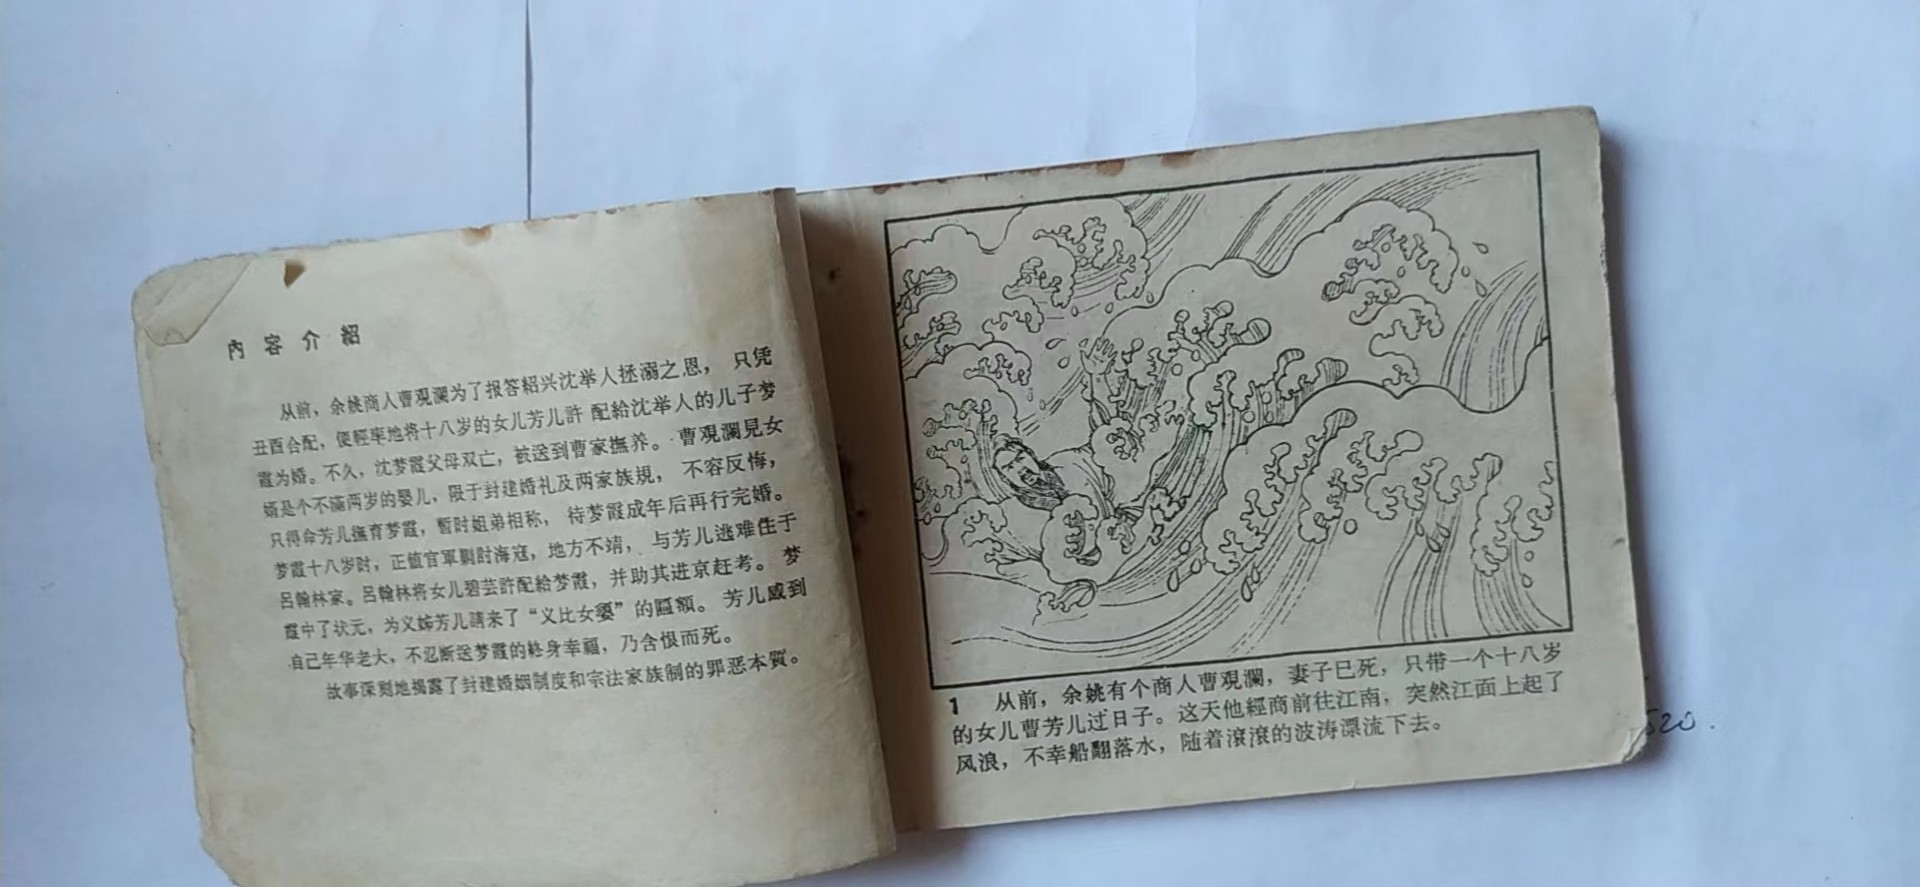 內容介紹
从前，余姚商人曹观瀾为了报答紹兴沈举人拯溺之恩，只凭
丑酉合配，便輕率地将十八岁的女儿芳儿許配給沈举人的儿子梦
霞为婚。不久，沈梦霞父母双亡，被送到曹家撫养。曹观瀾見女
婿是个不滿两岁的婴儿，限于封建婚礼及两家族規，不容反悔，
只得命芳儿撫育梦霞，暫时姐弟相称，待梦霞成年后再行完婚。
梦霞十八岁时，正值官軍剿討海寇，地方不靖，与芳儿逃难住于
呂翰林家。呂翰林将女儿碧芸許配給梦霞，并助其进京赶考。梦
霞中了状元，为义姊芳儿請来了“义比女嬃”的匾額。芳儿感到
自己年华老大，不忍断送梦霞的終身幸福，乃含恨而死。
故事深刻地揭露了封建婚姻制度和宗法家族制的罪恶本質。
1 从前，余姚有个商人曹观瀾，妻子已死，只带一个十八岁
的女儿曹芳儿过日子。这天他經商前往江南，突然江面上起了
风浪，不幸船翻落水，随着滾滾的波涛漂流下去。
520.